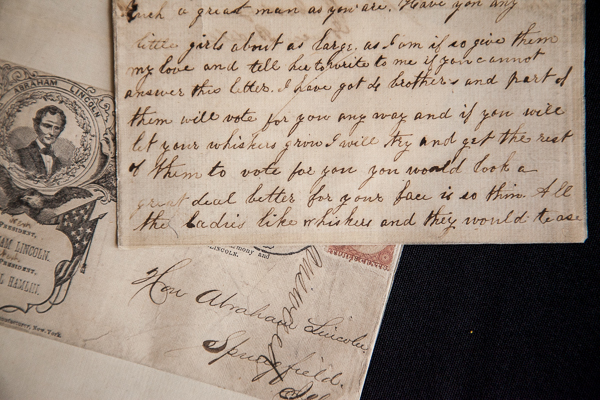 such a great man as you are. Have you any
little girls about as large as I am if so give them
my love and tell her to write to me if you cannot
answer this letter. I have got 4 brothers and part of
them will vote for you any way and if you will
let your whiskers grow I will try and get the rest
of them to vote for you you would look a
great deal better for your face is so thin. All
the ladies like whiskers and they would tease
ABRAHAM LINCOLN
PRESIDENT,
HAM LINCOLN.
PRESIDENT,
L HAMLIN.
New-York
mony and
LINCOLN.
Answered
Hon Abraham Lincoln
Springfield
Ill